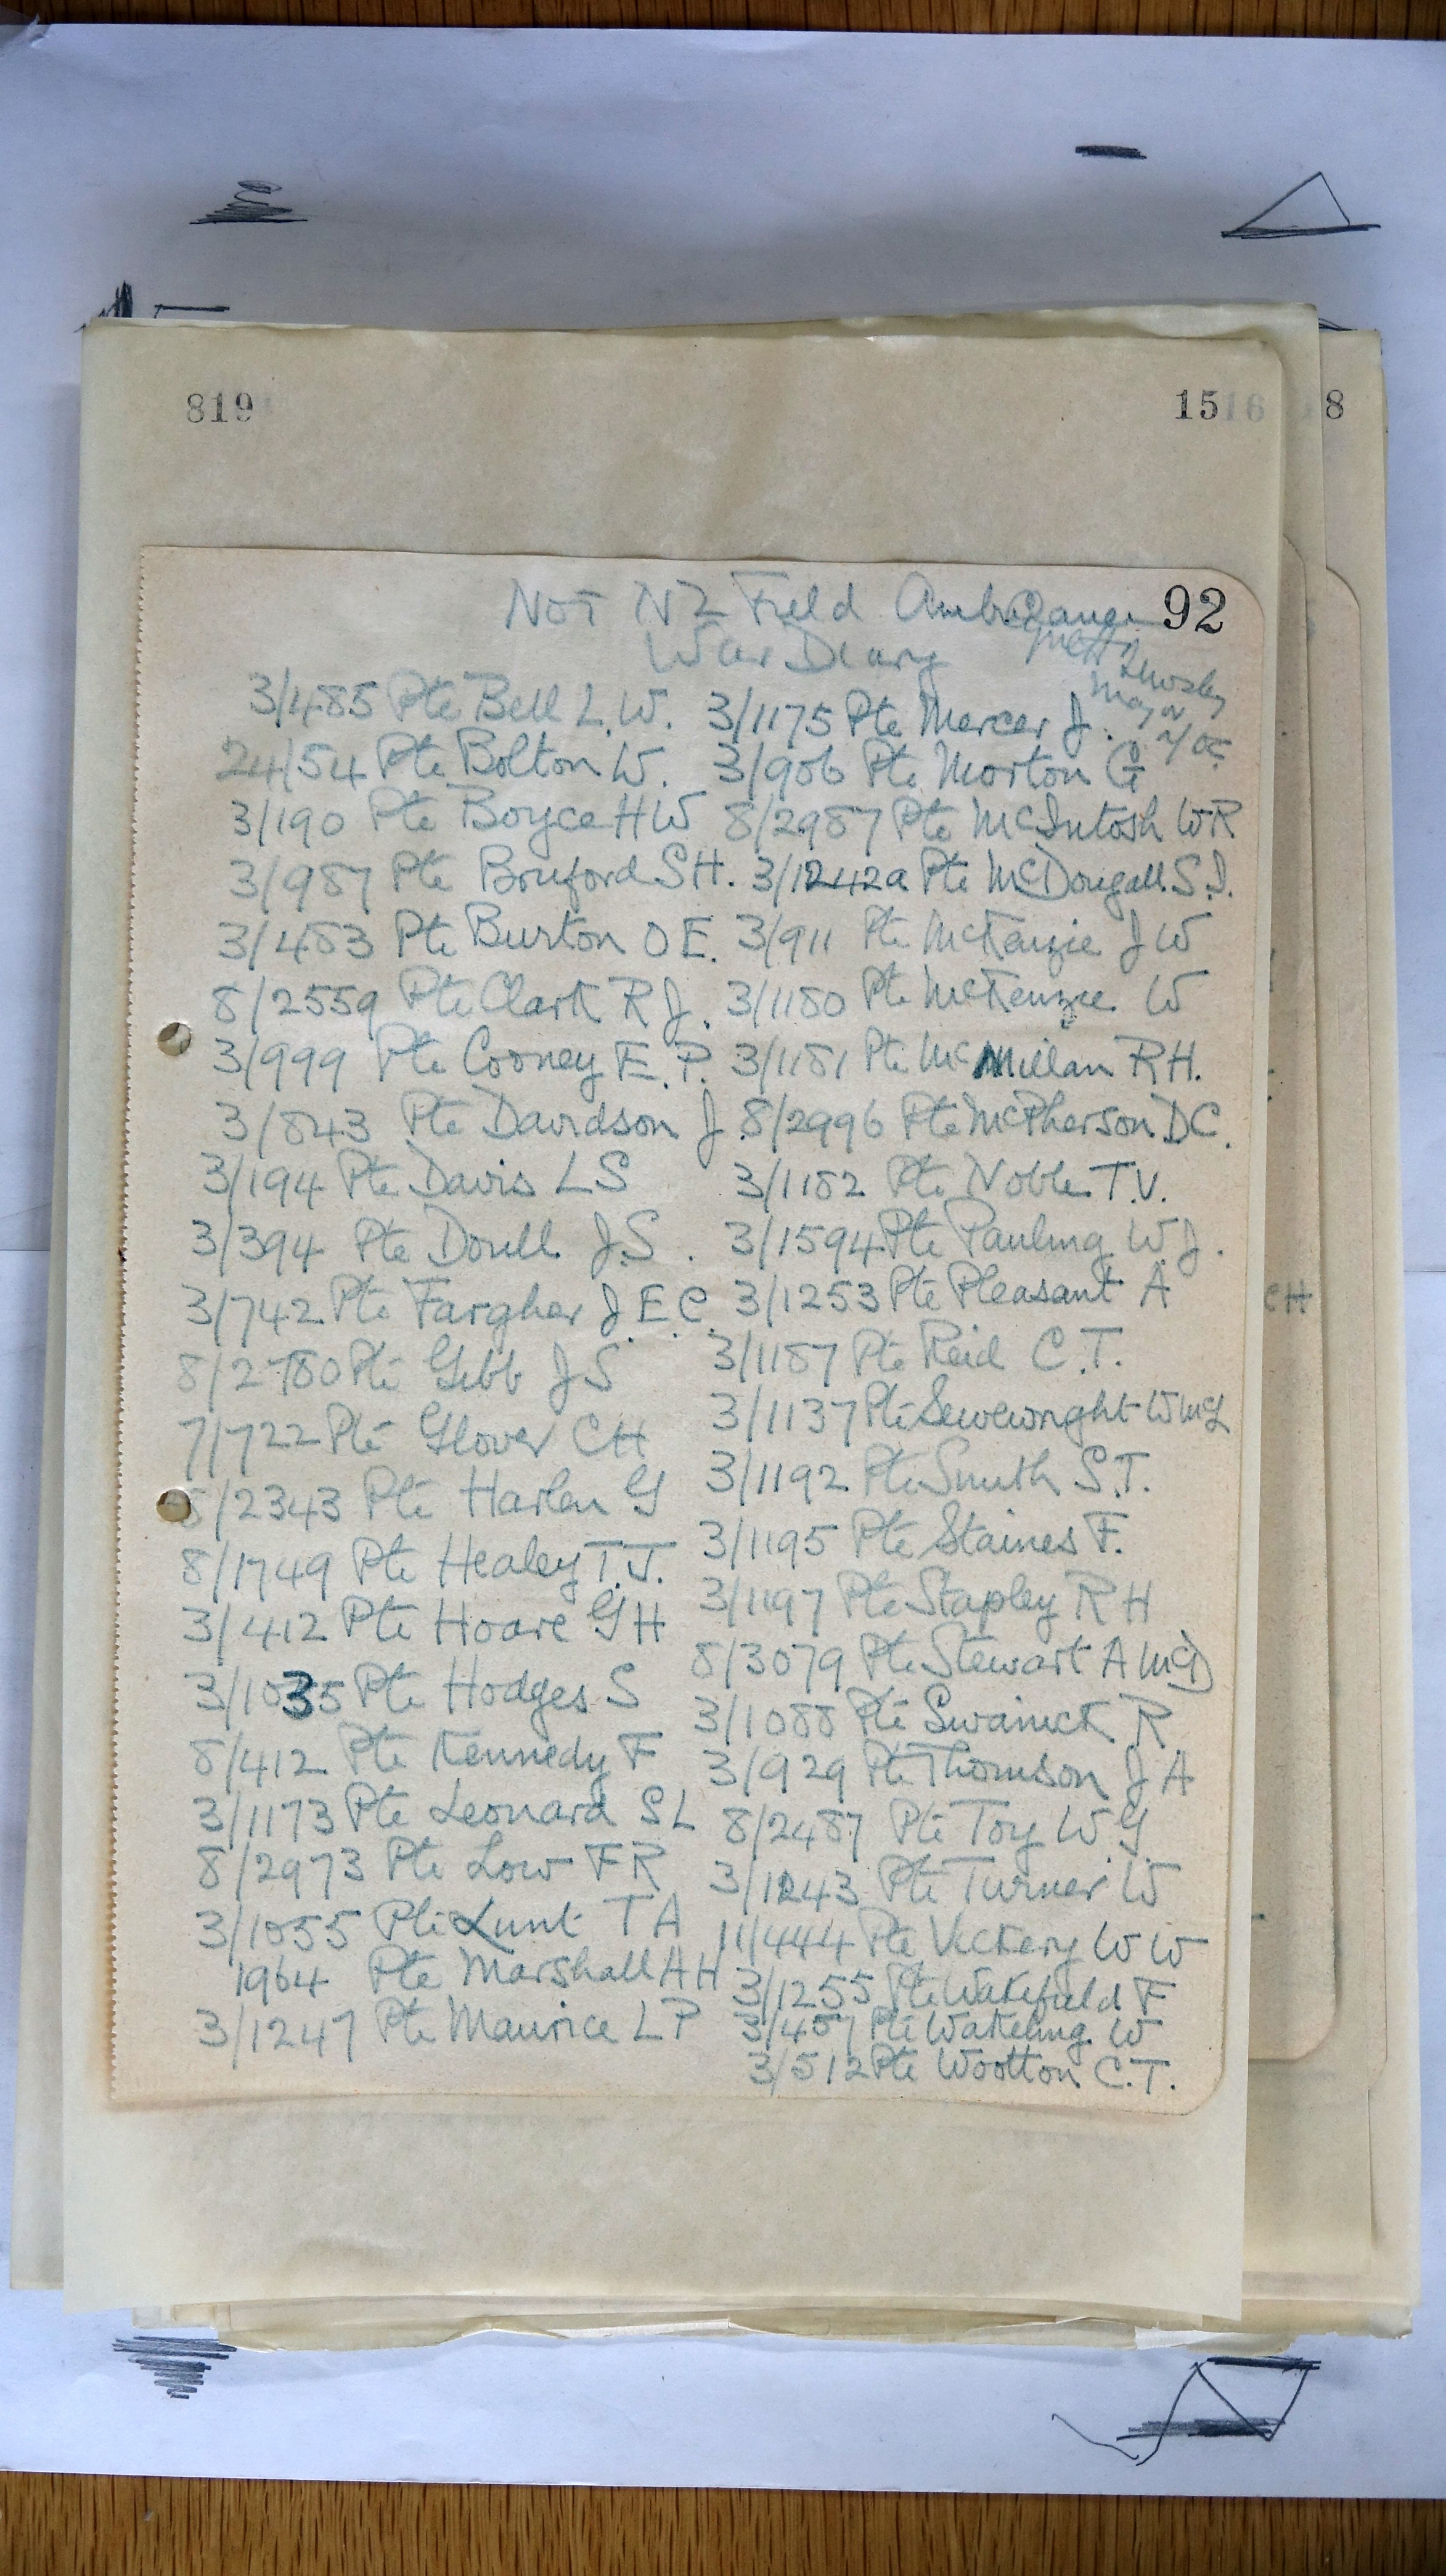 819
15
16
8
92
Not NZ Field Ambulance
War Diary
3/485 Pte Bell L.W.
24/54 Pte Bolton W.
3/190 Pte Boyce HW
3/987 Pte Bruford SH.
3/483 Pte Burton O E.
8/2559 Pte Clark R J.
3/999 Pte Cooney E.P.
3/843 Pte Davidson J.
3/194 Pte Davis LS
3/394 Pte Doull J.S.
3/742 Pte Fargher J.E.C.
8/2780 Pte Gibb J S
7/722 Pte Glover CH
8/2343 Pte Harlen G
8/1749 Pte Healey T.J.
3/412 Pte Hoare G H
3/1035 Pte Hodges S
8/412 Pte Kennedy F
3/1173 Pte Leonard SL
8/2973 Pte Low FR
3/1055 Pte Lunt T A
1964 Pte Marshall AH
3/1247 Pte Maurice L P
3/1175 Pte Mercer J.
3/906 Pte Morton G
8/2987 Pte McIntosh WR
3/1242a Pte McDougall S.J.
3/911 Pte McKenzie J W
3/1180 Pte McKenzie W
3/1181 Pte McMillan RH.
8/2996 Pte McPherson DC.
3/1182 Pte Noble T.V.
3/1594 Pte Pauling W.J.
3/1253 Pte Pleasant A
3/1187 Pte Reid C.T.
3/1137 Pte Sewewright W McL
3/1192 Pte Smith S.T.
3/1195 Pte Staines F.
3/1197 Pte Stapley R H
8/3079 Pte Stewart A McD
3/1088 Pte Swanick R
3/929 Pte Thomson J A
8/2487 Pte Toy W.G.
3/1243 Pte Turner W
11/444 Pte Vickery W W
3/1255 Pte Wakefield F
3/457 Pte Wakeling W
3/512 Pte Wootton C.T.
CH